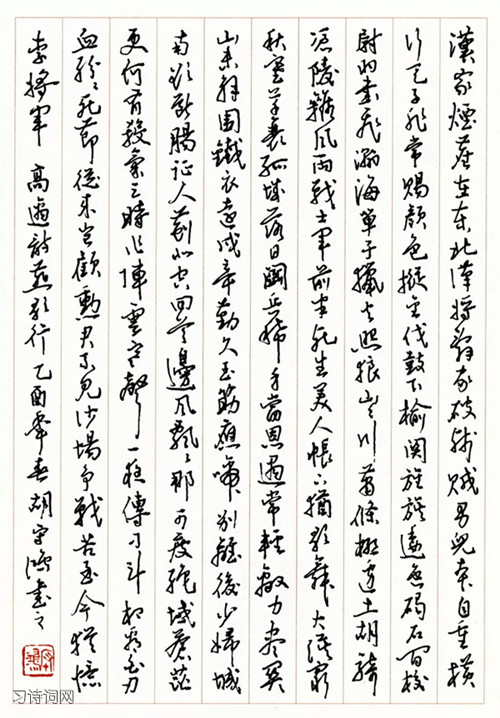 漢家煙塵在東北漢將辭家破殘賊男兒本自重橫
行天子非常賜顏色摐金伐鼓下榆關旌旆逶迤碣石間校
尉羽書飛瀚海單于獵火照狼山山川蕭條極邊土胡騎
憑陵雜風雨戰士軍前半死生美人帳下猶歌舞大漠窮
秋塞草衰孤城落日鬥兵稀身當恩遇常輕敵力盡關
山未解圍鐵衣遠戍辛勤久玉筯應啼別離後少婦城
南欲斷腸征人薊北空回首邊風飄飄那可度絕域蒼茫
更何有殺氣三時作陣雲寒聲一夜傳刁斗相看白刃
血紛紛死節從來豈顧勳君不見沙場爭戰苦至今猶憶
李將軍 高適詩燕歌行 乙酉年春胡鴻書之
习诗词网